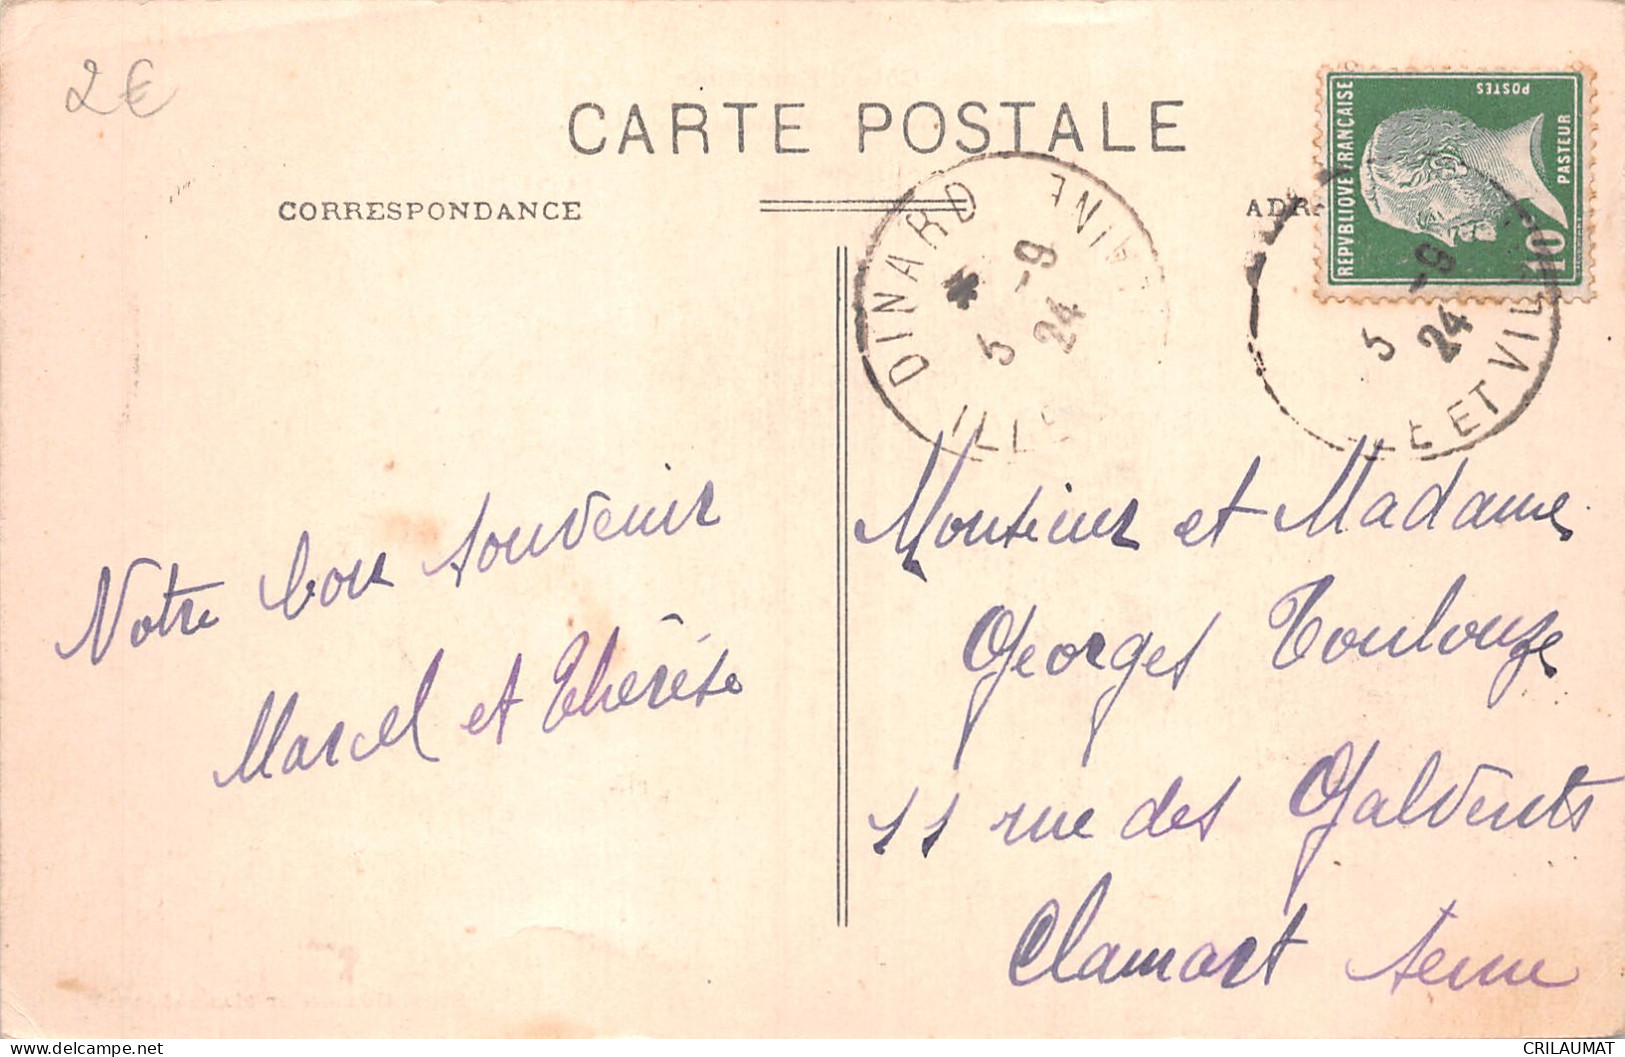 2€
CARTE POSTALE
CORRESPONDANCE
ADR
REPVBLIQVE FRANÇAISE
POSTES
PASTEUR
10
DINARD
ILLE
AINE
* 5 -9
24
5 -9
24
LE ET VIL
Notre bon souvenir
Marcel et Thérèse
Monsieur et Madame
Georges Toulouze
11 rue des Galvents
Clamart Seine
delcampe.net
CRILAUMAT